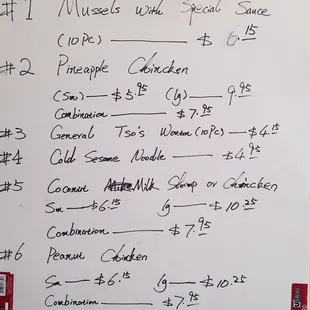 #1 Mussels with Special Sauce
(10PC) — $ 6.15
#2 Pineapple Chincken
(Sm) — $5.95 (lg) — 9.95
Combination — $7.95
#3 General Tso's Wonton (10PC) — $4.15
#4 Cold Sesame Noodle — $4.95
#5 Coconut Milk Shrimp or Chincken
Sm — $6.15 lg — $10.25
Combination — $7.95
#6 Peanut Chicken
Sm — $6.15 lg — $10.25
Combination — $7.95